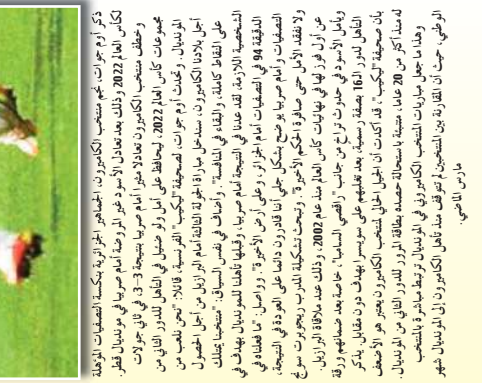 ذكر أوم جوات، نجم منتخب الكاميرون، الجماهير الجزائرية بنكسة التصفيات المؤهلة
لكأس العالم 2022 وذلك بعد تعادل الأسود غير المروضة أمام صربيا في مونديال قطر.
وخطف منتخب الكاميرون تعادلا مثيرا أمام صربيا بنتيجة 3-3 في ثاني جولات
مجموعات كأس العالم 2022، ليحافظ على أمل ولو ضئيل في التأهل للدور الثاني من
المونديال. وتحدث أوم جوات، لصحيفة "ليكيب" الفرنسية، قائلا: "نحن نلعب من
أجل بلادنا الكاميرون، سندخل مباراة الجولة الثالثة أمام البرازيل من أجل الحصول
على النقاط كاملة، والبقاء في المنافسة". وأضاف في نفس السياق: "منتخبنا يمتلك
الشخصية اللازمة، لقد عدنا في النتيجة أمام صربيا، وقبلها تأهلنا للمونديال بهدف في
الدقيقة 94 في التصفيات أمام الجزائر، وعلى أرض الأخيرة". وواصل: "ما فعلناه في
التصفيات وأمام صربيا يوضح بشكل جلي أننا قادرون دائما على العودة في النتيجة،
ولا نفقد الأمل حتى صافرة الحكم الأخيرة". وتبحث تشكيلة المدرب ريجوبرت سونج
عن أول فوز لها في نهائيات كأس العالم منذ عام 2002، وذلك عند ملاقاة البرازيل.
ويأمل الأسود في حدوث تراخ من جانب "راقصي السامبا"، خاصة بعد ضمانهم ورقة
التأهل لدور الـ16 بصفة رسمية، بعد تغلبهم على سويسرا بهدف دون مقابل. يذكر
بأن صحيفة "ليكيب"، قد أكدت أن الجيل الحالي لمنتخب الكاميرون يعتبر هو الأضعف
له منذ أكثر من 20 عاما، متنبئة باستحالة حصده بطاقة المرور للدور الثاني من المونديال.
وهذا ما جعل مباريات المنتخب الكاميروني في المونديال ترتبط مباشرة بالمنتخب
الوطني، حيث أن المقارنة بين المنتخبين لم تتوقف منذ تأهل الكاميرون إلى المونديال شهر
مارس الماضي.